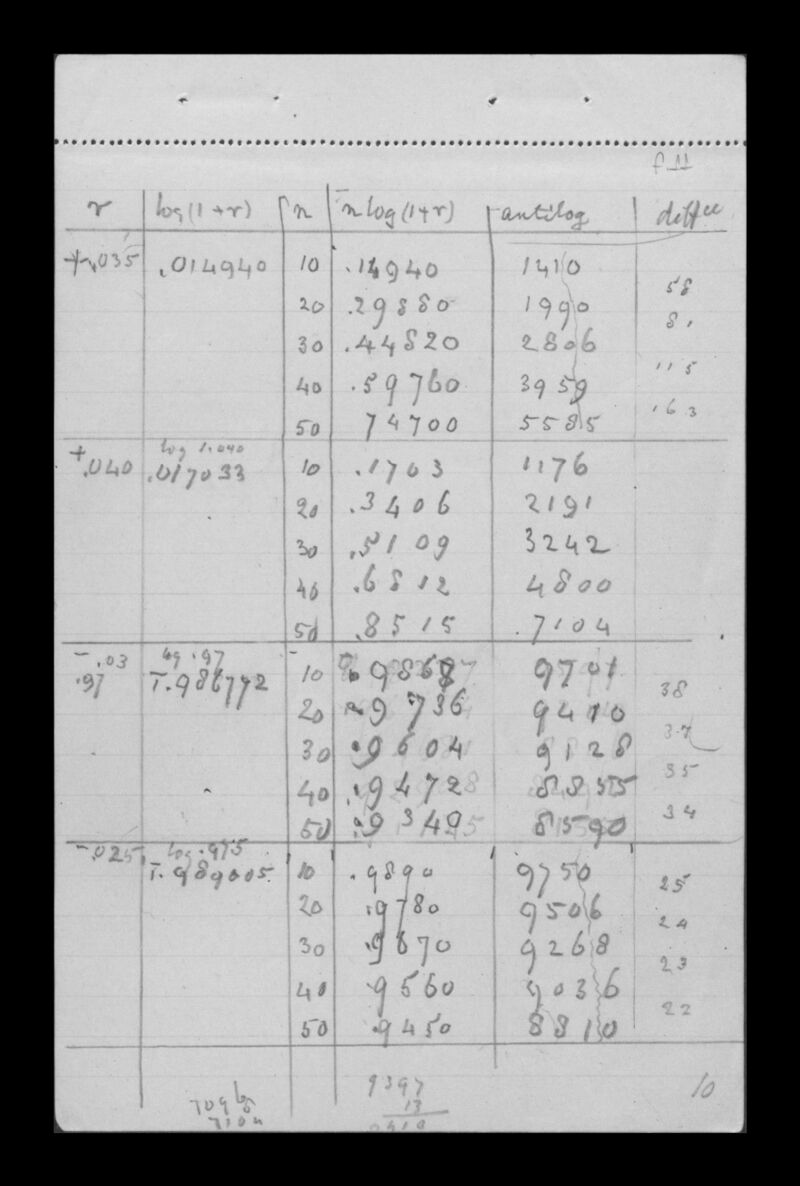 f 11
r log(1+r) n n log(1+r) antilog diffce
+.035 .014940 10 .14940 1410
58
20 .29880 1990
81
30 .44820 2806
115
40 .59760 3959
163
50 74700 5585
log 1.040
+.040 .017033 10 .1703 1176
20 .3406 2191
30 .5109 3242
40 .6812 4800
50 .8515 .7104
-.03 log .97
.97 1.986772 10 .9868 9701
38
20 .9736 9410
37
30 .9604 9128
35
40 .9472 8855
34
50 .9349 8590
-.025 log .975
1.989005 10 .9890 9750
25
20 .9780 9506
24
30 .9670 9268
23
40 .9560 9036
22
50 .9450 8810
9397
13
7104
10